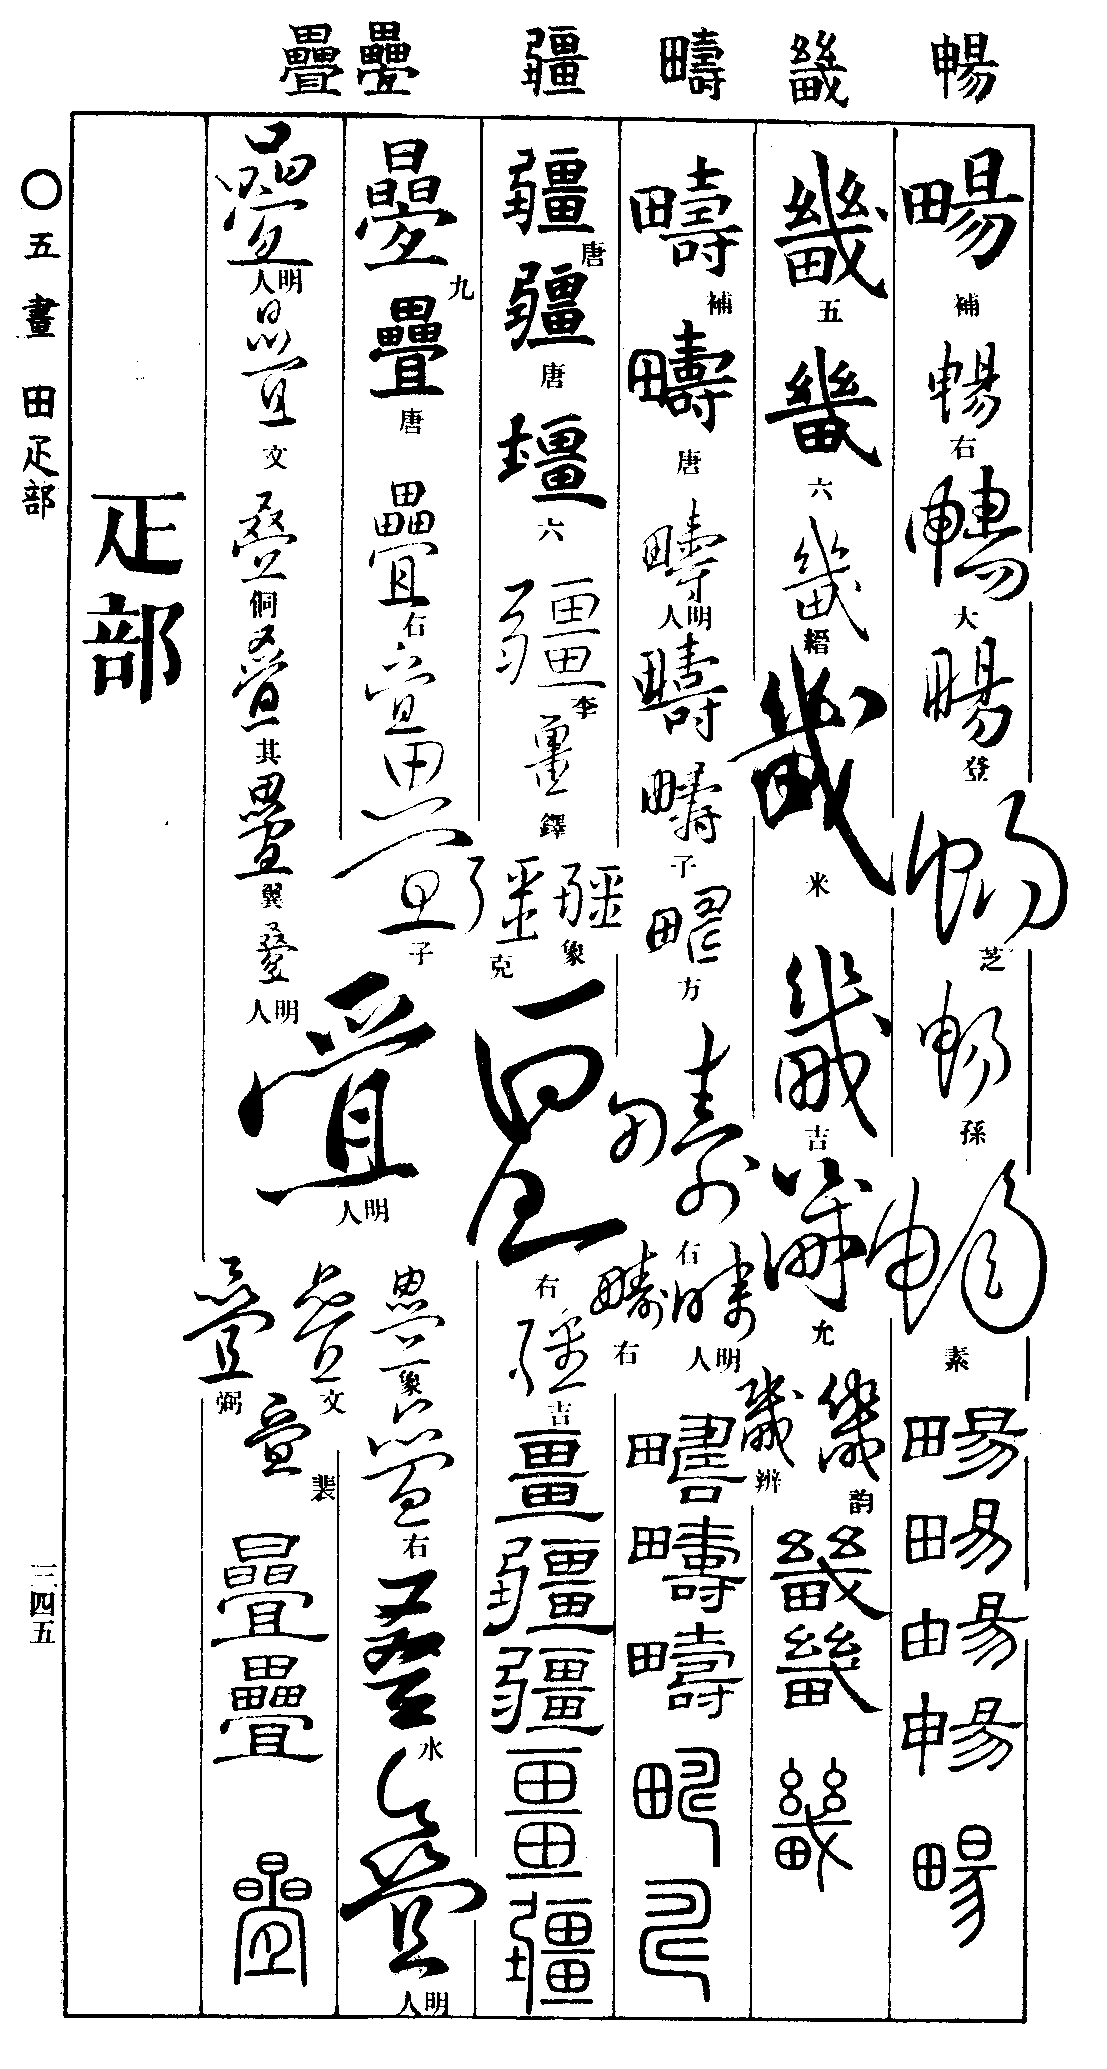 暢 畿 疇 疆 疊 疊
畼 補 暢 右 暢 大 畼 登 暢 芝 暢 孫 暢 素 畼 畼 畼 暢 畼
畿 五 畿 六 畿 縉 畿 米 畿 吉 畿 允 畿 韵 畿 辨 畿 畿 畿
疇 補 疇 唐 疇 明人 疇 疇 子 疇 方 疇 右 疇 明人 疇 右 疇 疇 疇
疆 唐 疆 唐 壃 六 疆 李 畺 鐸 疆 象 疆 克 畺 右 疆 吉 畺 疆 疆 畺 疆
疊 九 疊 唐 疊 右 疊 疊 子 疊 明人 疊 象 疊 右 疊 水 疊 明人
疊 明人 疊 文 疊 侗 疊 其 疊 翼 疊 明人 疊 文 疊 弼 疊 裴 疊 疊 疊
疋部
○五畫 田疋部
三四五